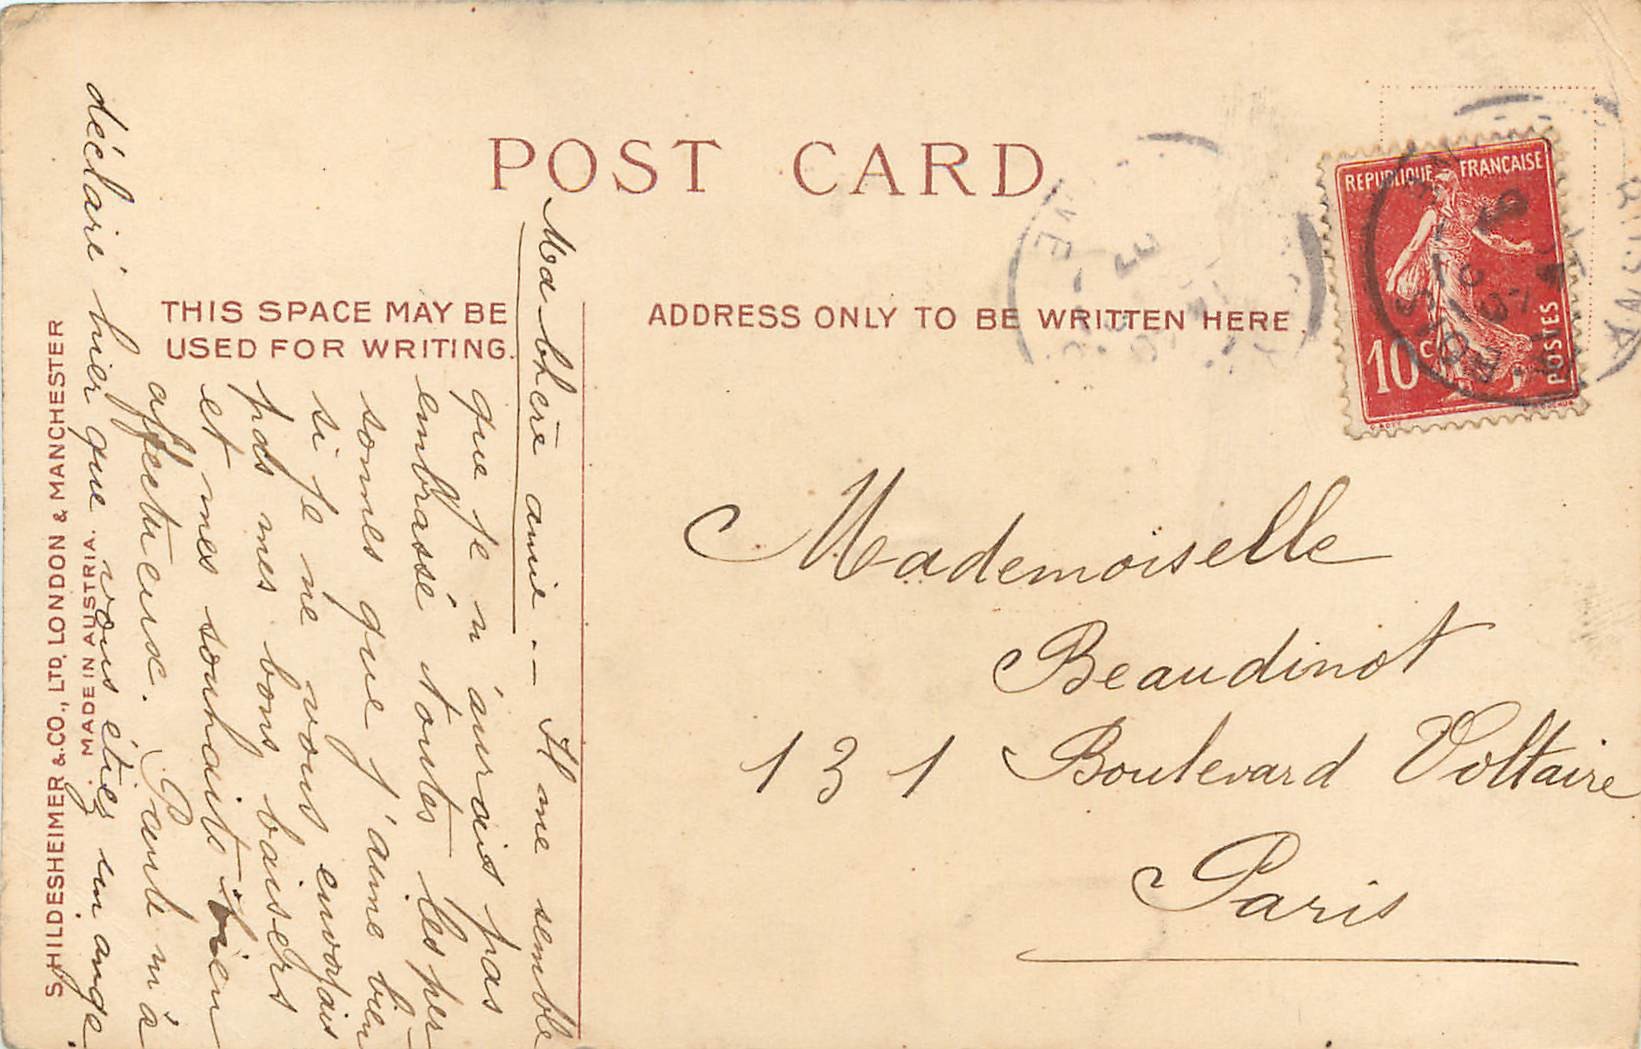 POST CARD
THIS SPACE MAY BE
USED FOR WRITING.
ADDRESS ONLY TO BE WRITTEN HERE.
REPUBLIQUE FRANÇAISE
10 c
POSTES
Mademoiselle
Beaudinot
131 Boulevard Voltaire
Paris
Ma chère amie. — Il me semble
que je n'aurais pas
embrassé toutes les per-
sonnes que j'aime bien
si je ne vous envoyais
pas mes bons baisers
et mes souhaits bien
affectueux. Paule m'a
déclaré hier que vous étiez un ange.
S. HILDESHEIMER & CO., LTD. LONDON & MANCHESTER
MADE IN AUSTRIA.